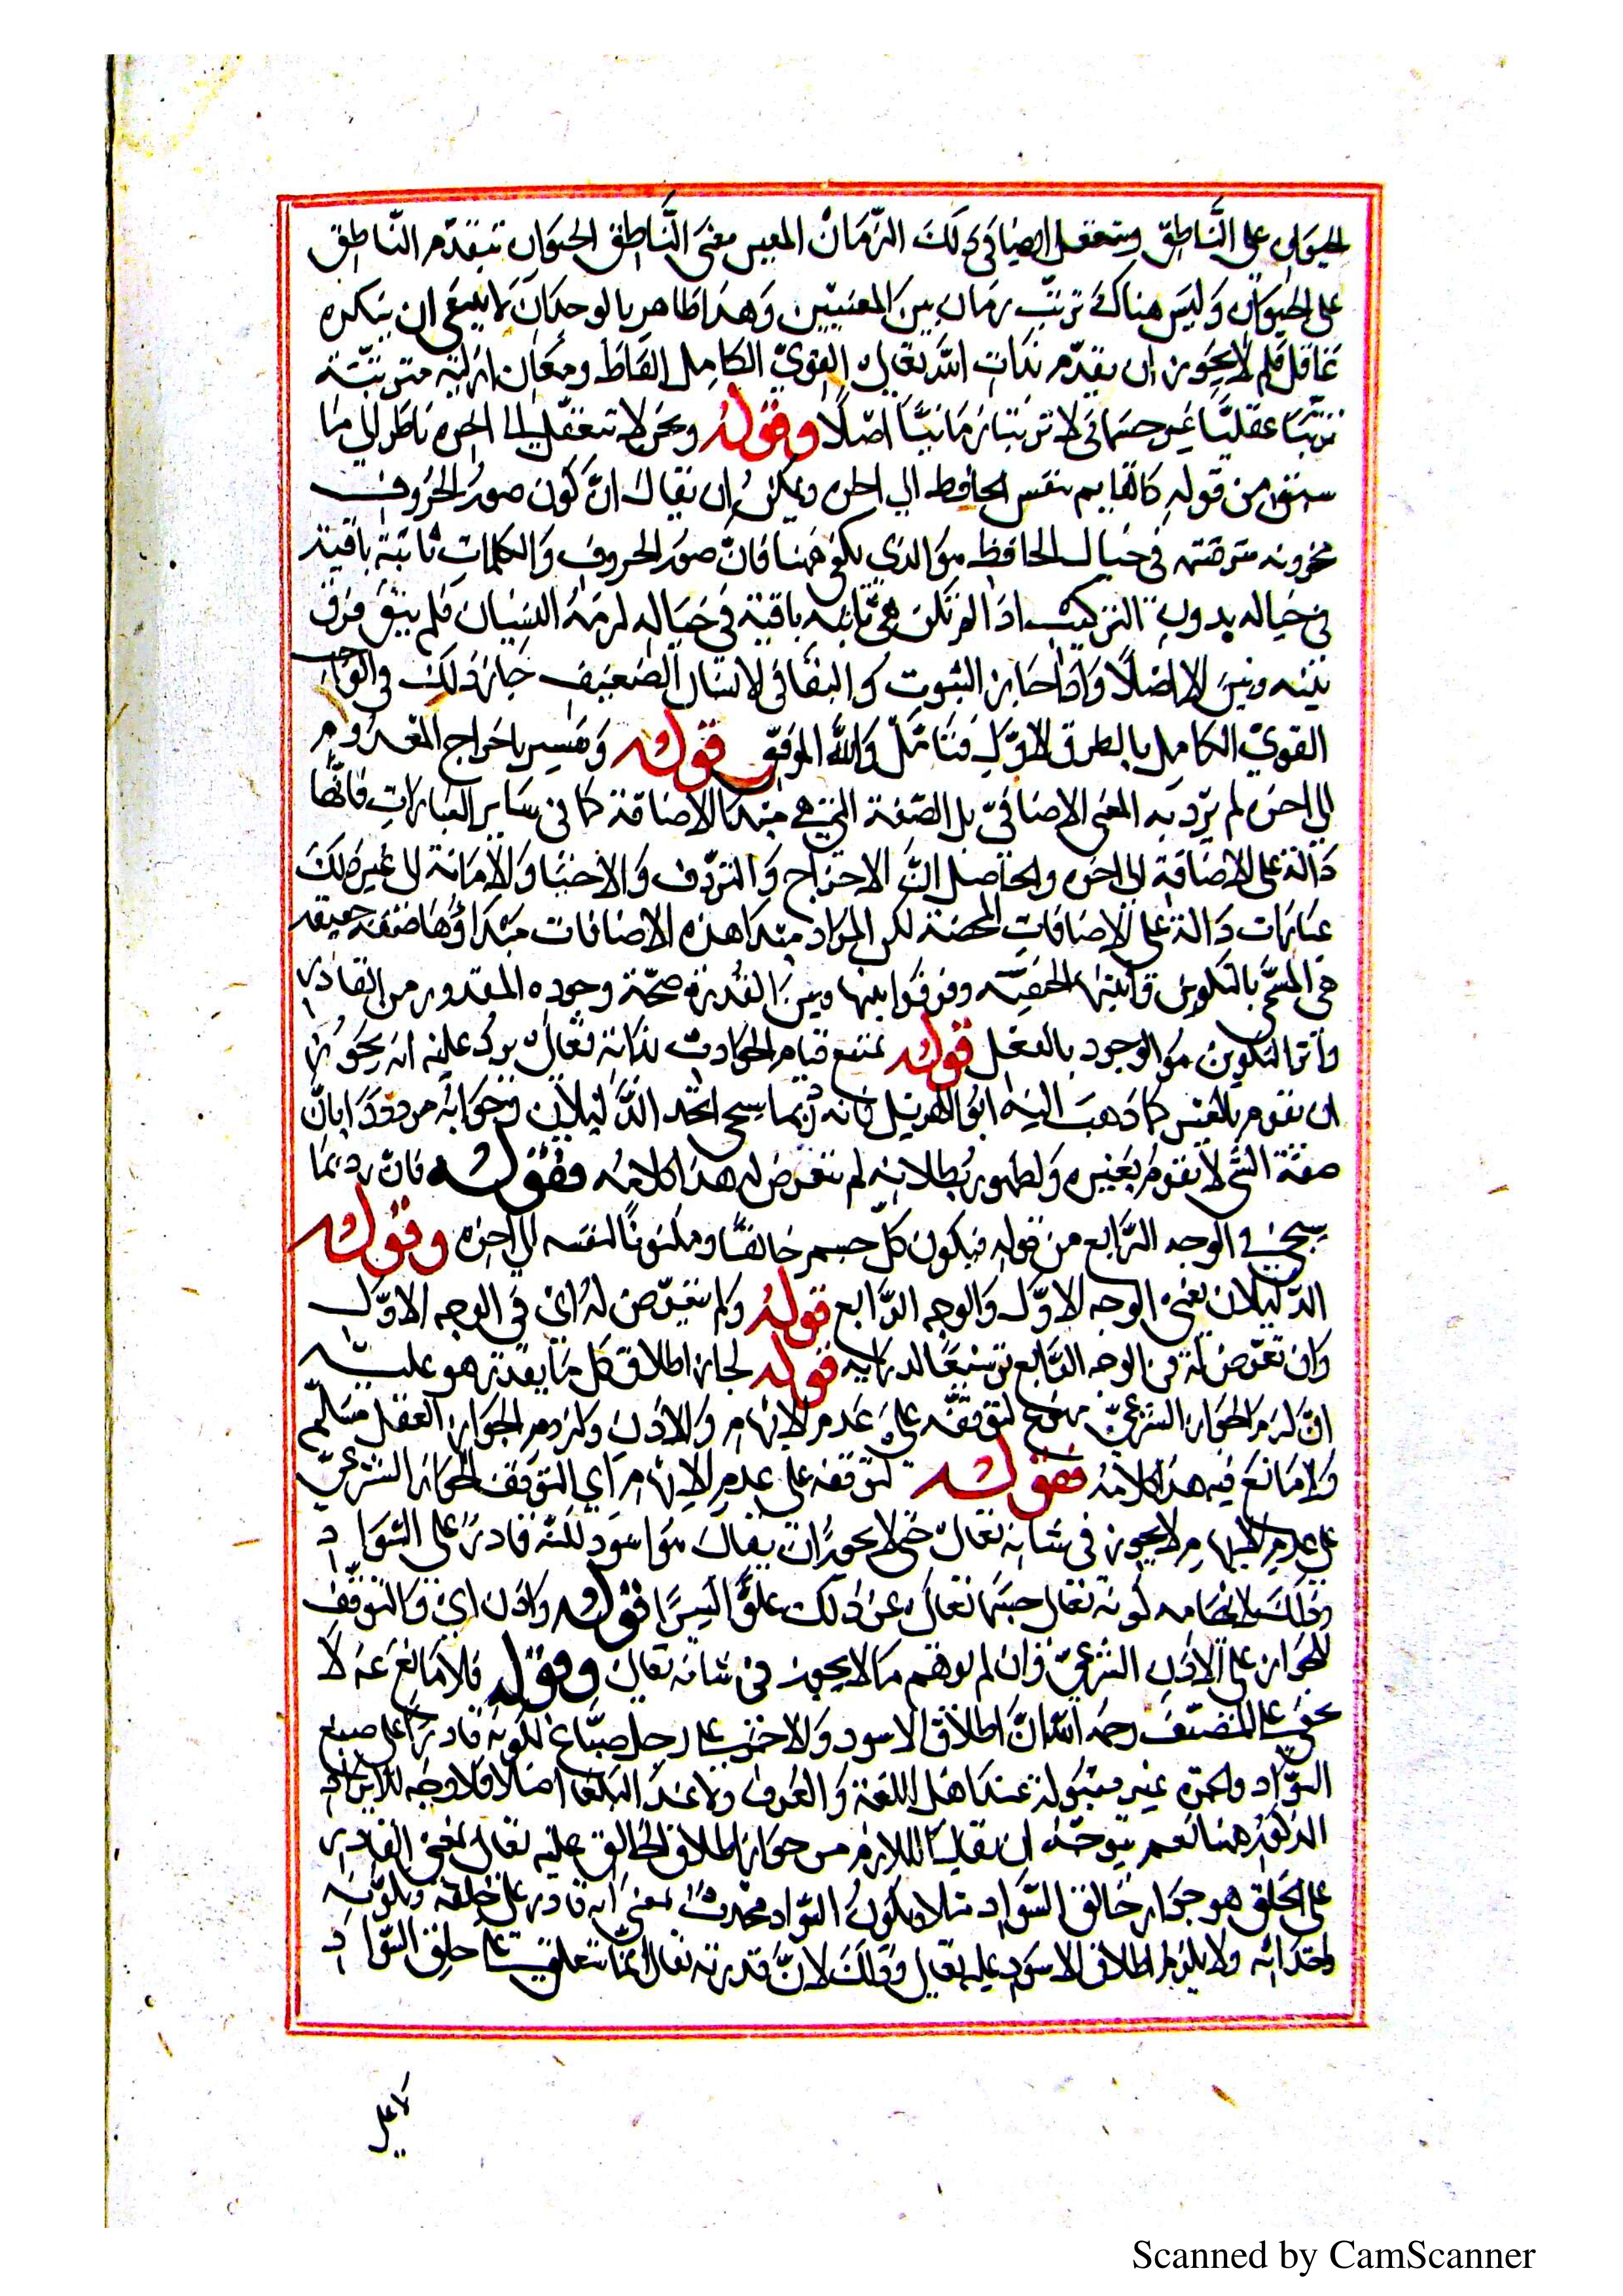 الحيوان على النَّاطق ويتعقل ايضا في ذلك الزّمان المعين معنى النَّاطق الحيوان بتقدّم النّاطق
على الحيوان وَليسَ هناك ترتّب زمان بين المعنيين وَهذا ظاهر بالوجدان لا ينبغي ان ينكره
عَاقل فلم لا يجوز ان يقدّم بذات اللّه تعالى القويّ الكامل الفاظ ومعان ازلية مترتبّة
ترتبًا عقليًّا غير جسماني لا ترتبًا زمانيًّا اصْلًا وقولهُ ونحن لا نتعقل الى اخره ناظر الى ما
سبق من قوله كالقايم بنفس الحافظ الى اخره ويمكن ان يقال انّ كون صور الحروف
مخزونه مترقمته في خيال الحافظ هو الذي يكفي ههنا فانّ صور الحروف وَالكلمات ثابتة باقية
في خياله بدون الترتيب اذا لم تكن هي ثابته باقية في خياله لزمهُ النسيان فلم يبق فرق
بينه وبين الا اصْلًا وَاذا جاز الثبوت و البقا في الانسان الضعيف جاز ذلك في الواجب
القويّ الكامل بالطريق الاوّل فتامّل وَاللّه الموفّق قوله وَتفسير باخراج المعدوم
الى اخره لم يرد به المعنى الاضافيّ بل الصّفة التي هي مبدا الاضافة كما في ساير العبارات فانّها
دَالّة على الاضافة الى اخره والحاصل انّ الاخراج وَ وَالاماتة الى غير ذلك
عبارات دَالة على الاضافات المحضة لكن المراد مبدا هذه الاضافات مبدَاؤها صفة حقيقة
هي المسمّى بالتكوين الحنفيّه وفرقوا بينها وبين القدرة صحّة وجوده المقدور من القادر
واثر التكوين هو الوجود بالفعل قوله يمتنع قيام الحوادث بذاته تعالى يرد عليه انه يجوز
ان يقوم بالغير كما ذهب اليه ابو الهذيل فانه ربّما سيجي اتّحد الدّليلان وجوابه مردود بانّ
صفة الشي لا تقوم بغيره ولظهور بُطلانه لم يتعرّض له هذا كلامه فقوله فان ربما
سيجي في الوجه الرّابع من قوله فيكون كلّ جسم خالقًا ومكنونًا لنفسه الى اخره وقوله
الدّليلان يعني الوجه الاوّل وَالوجه الرّابع قوله وَلم يتعرّض له اي في الوجه الاوّل
وَان تعرّض له في الوجه الرّابع قوله لجاز اطلاق كل ما يقدر هو عليه
انّ لزم الجواز الشرعيّ ممنوع لتوقفه على عدم الايهام وَالاذن وَلزوم الجواز العقل مسلّم
وَلا مانع فيه هذا كلامه فقوله لتوقفه على عدم الايهام اي لتوقف الجواز الشرعيّ
على عدم الايهام لا يجوز في شانه تعالى حتى لا يجوز ان يقال هو اسود للنّه قادر على السّواد
وذلك لايهامه كونه تعالى جسمًا تعالى عن ذلك علوًّا كبيرًا قوله وَاذن اي وَالتوقف
للجواز على الاذن الشّرعيّ وَان لم يوهم ما لا يجوز في شانه تعالى وقوله فلا مانع عنه لا
يخفى على المصنّف رحمه اللّه انّ اطلاق الاسود وَالاحمر على رجل صبّاغ لكونه قادرًا على صبغ
السّواد والحمره غير مقبوله عند اهل اللغة وَالعرف ولا عند البلغا اصْلًا فلا وجه للايراد
المذكور ههنا نعم يتوجّه ان يقال اللازم من جواز اطلاق الخالق عليه تعالى بمعنى القادر
على الخلق هو جواز خالق السّواد مثلا ومكون السّواد محدث بمعنى انه قادر على خلقه وتكوينه
واحداثه ولا يلزم اطلاق الاسود عليه تعالى وَذلك لانّ قدرته تعالى انّما تتعلق على خلق السّواد
لا على
Scanned by CamScanner